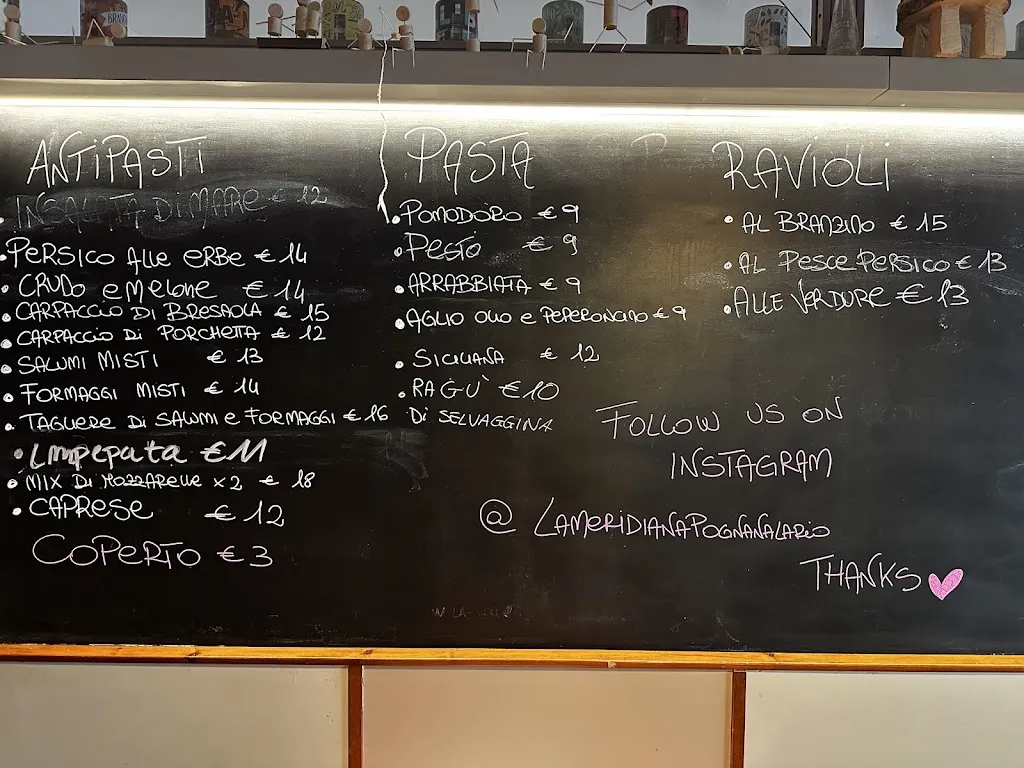 ANTIPASTI
INSALATA DI MARE € 12
• PERSICO Alle ERBE € 14
• CRUDO e MELONE € 14
• CARPACCIO DI BRESAOLA € 15
• CARPACCIO Di PORCHETTA € 12
• SALUMI MISTI € 13
• FORMAGGI MISTI € 14
• TAGLIERE Di SALUMI e FORMAGGI € 16
• Impepata € 11
• MIX Di MOZZARELLE x 2 € 18
• CAPRESE € 12
COPERTO € 3
PASTA
• POMODORO € 9
• PESTO € 9
• ARRABBIATA € 9
• AGLIO OLIO E PEPERONCINO € 9
• SICILIANA € 12
• RAGU' € 10
Di SELVAGGINA
RAVIOLI
• AL BRANZINO € 15
• AL PESCE PERSICO € 13
• ALLE VERDURE € 13
FOLLOW US ON
INSTAGRAM
@ LAMERIDIANAPOGNANALARIO
THANKS